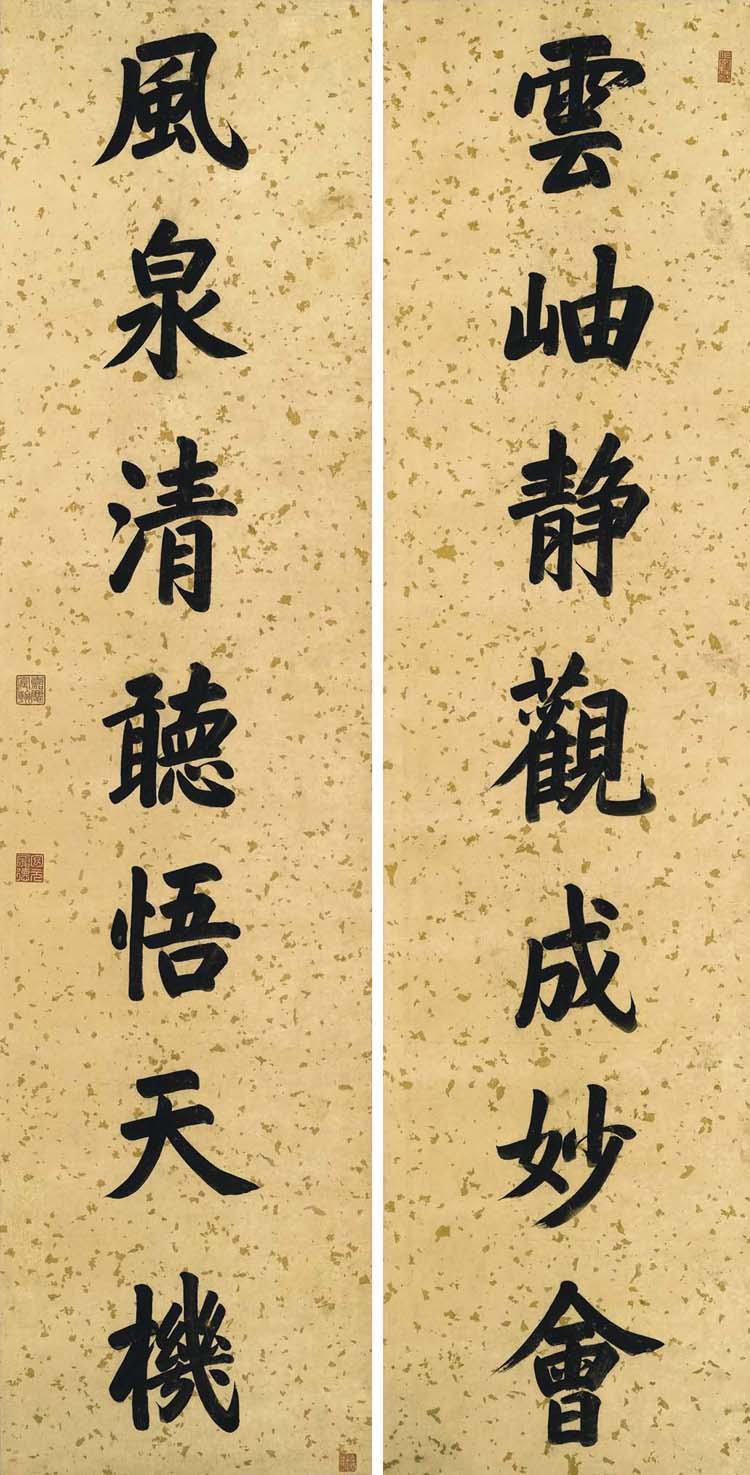 雲岫静觀成妙會
風泉清聽悟天機